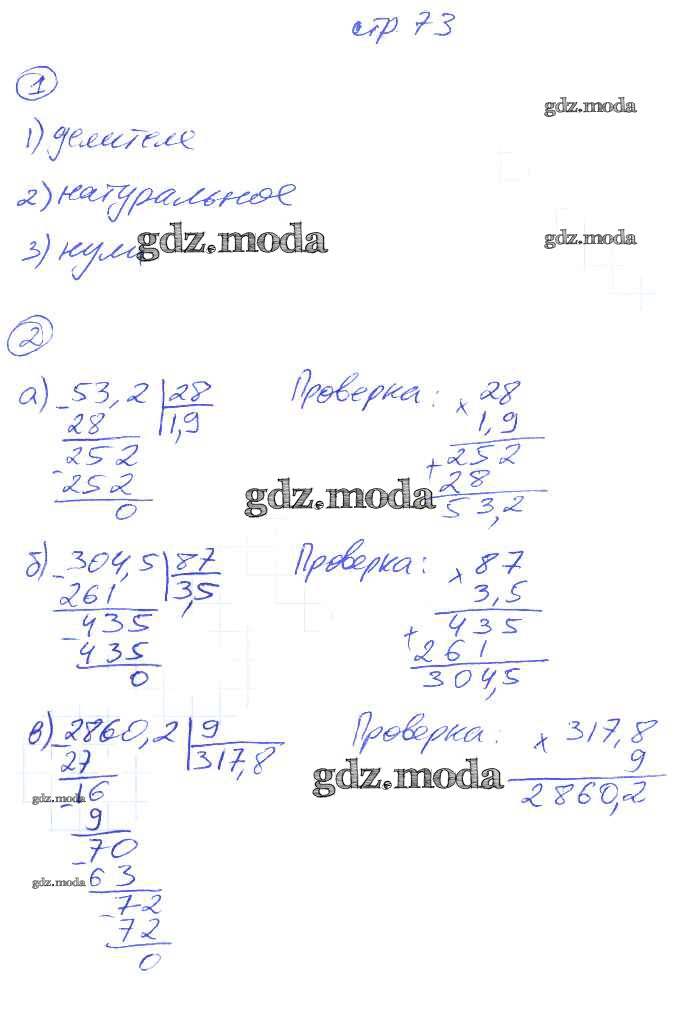 стр 73
1
gdz.moda
1) делителе
2) натуральное
gdz.moda
3) нулю
gdz.moda
2
а) - 53,2 | 28
28 | 1,9
- 252
252
0
Проверка: × 28
1,9
+ 252
28
53,2
gdz.moda
б) - 304,5 | 87
261 | 3,5
- 435
435
0
Проверка: × 87
3,5
+ 435
261
304,5
в) - 2860,2 | 9
27 | 317,8
- 16
9
- 70
63
- 72
72
0
Проверка: × 317,8
9
2860,2
gdz.moda
gdz.moda
gdz.moda